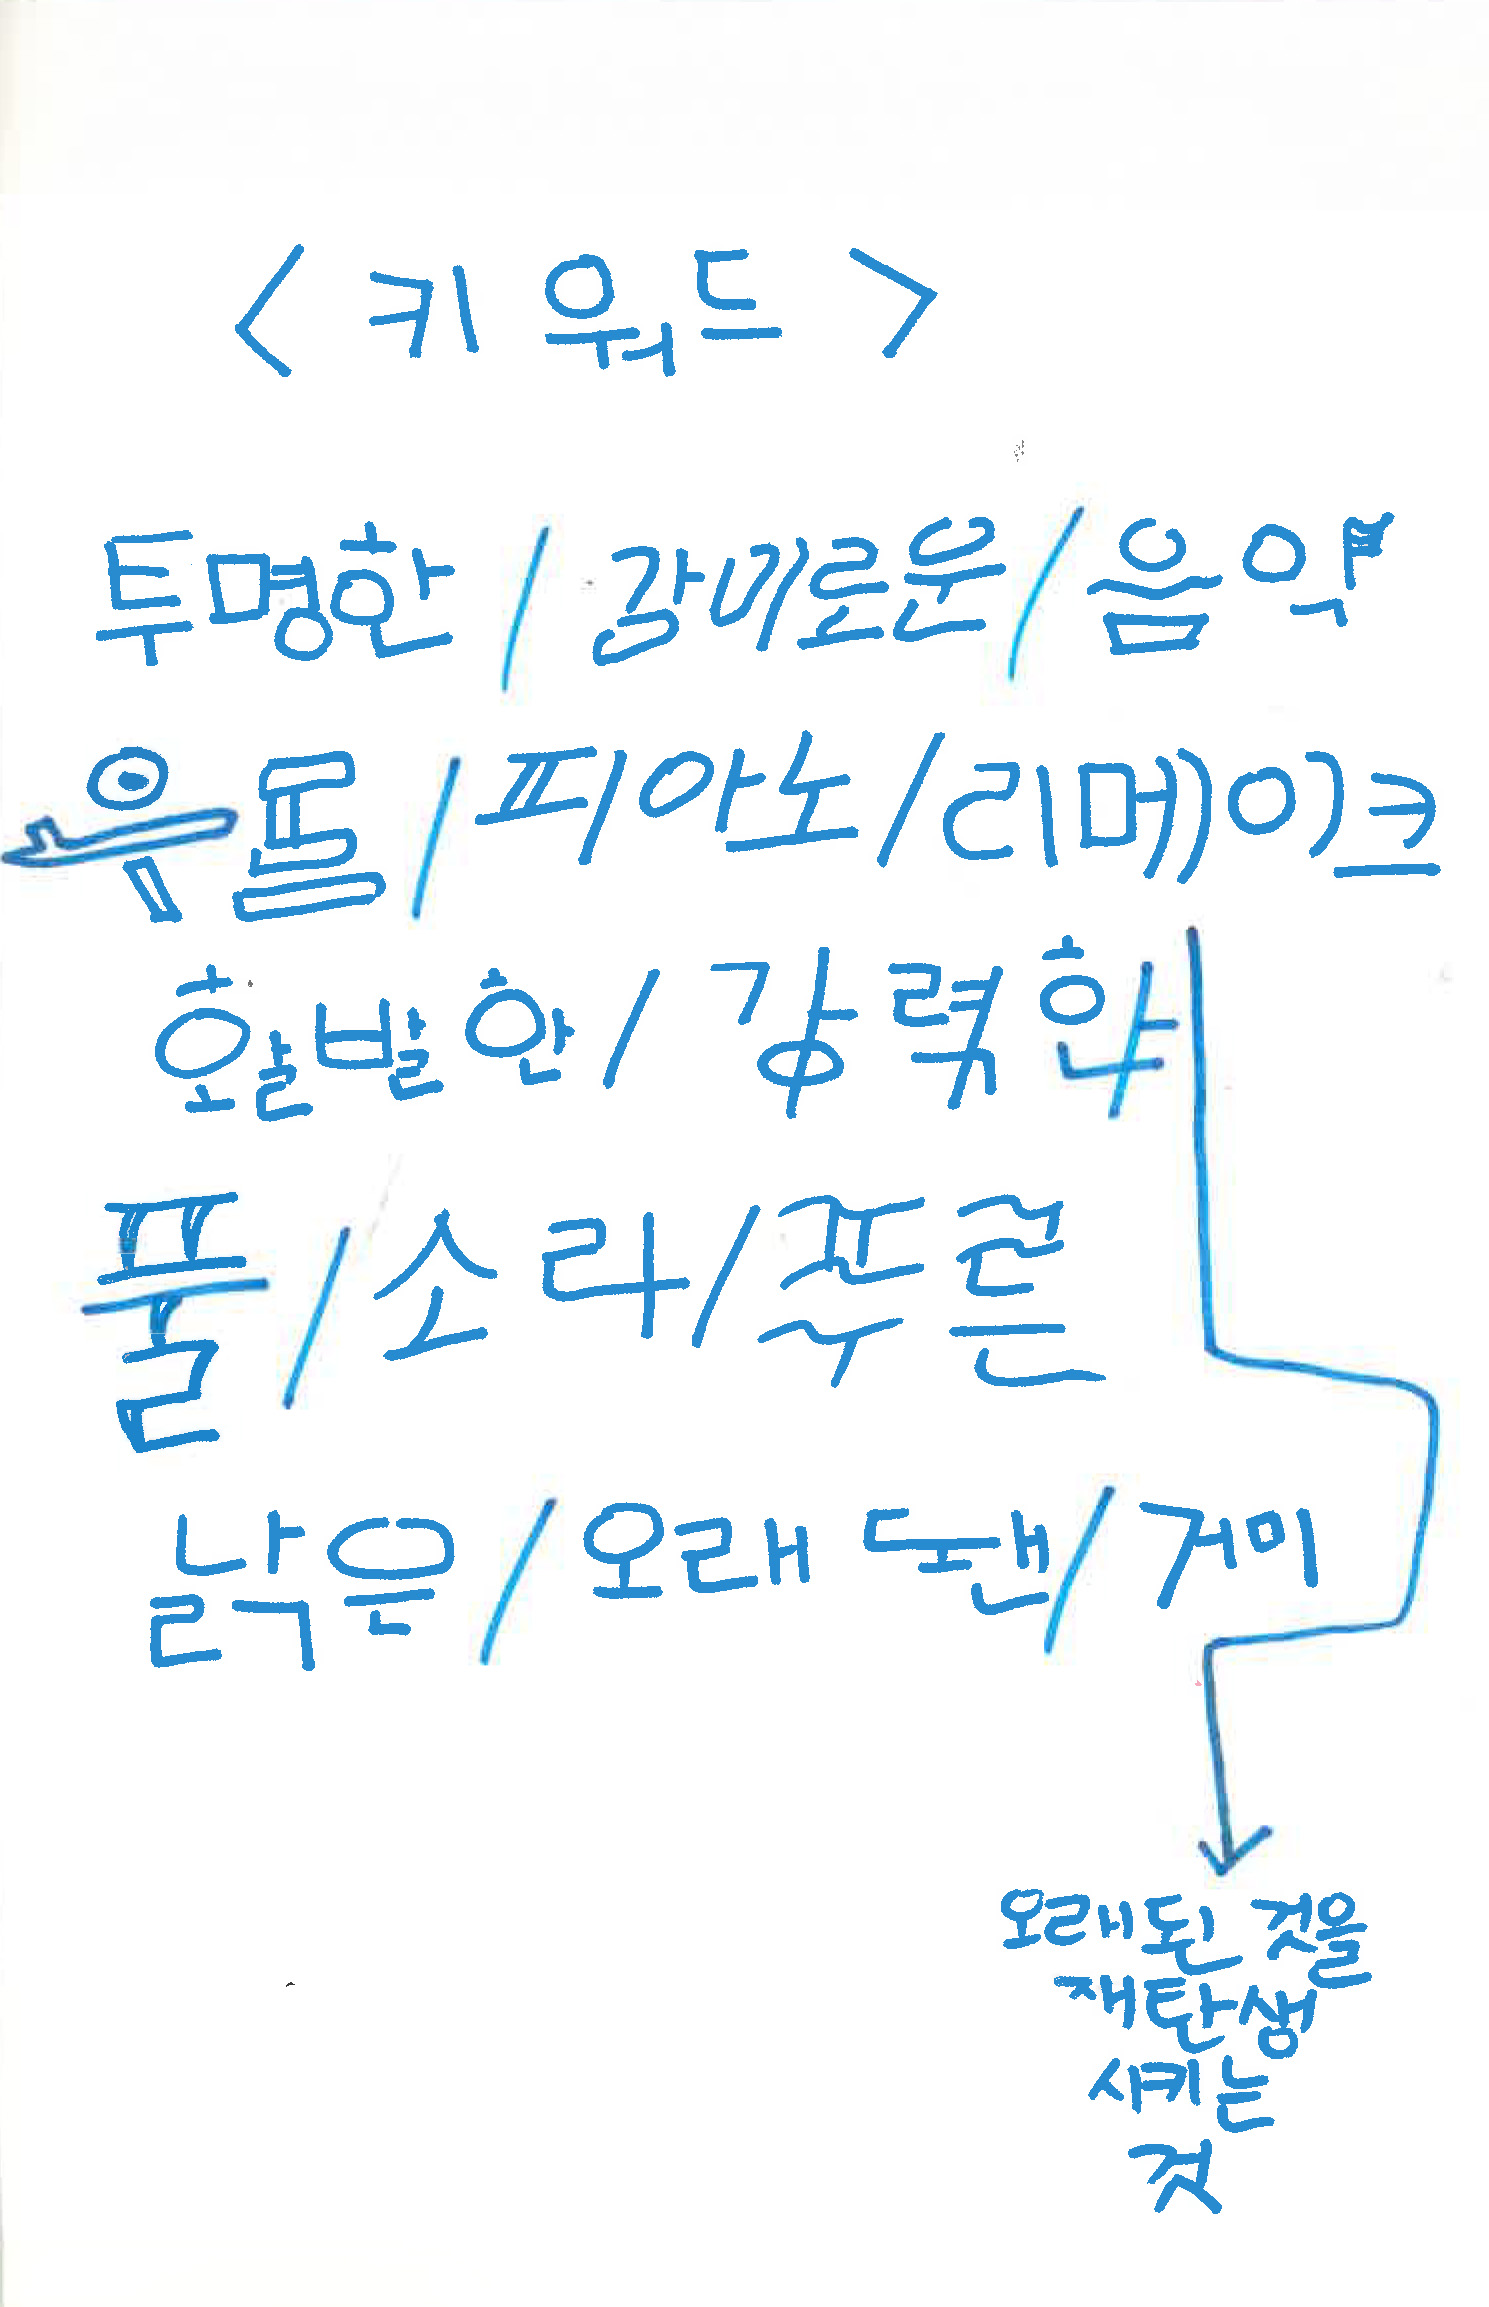 < 키워드 >
투명한 / 감미로운 / 음악
/ 피아노 / 리메이크
활발한 / 강력한 /
풀 / 소라 / 푸른
낡은 / 오래 됀 / 거미
오래된 것을
재탄생
시키는
것